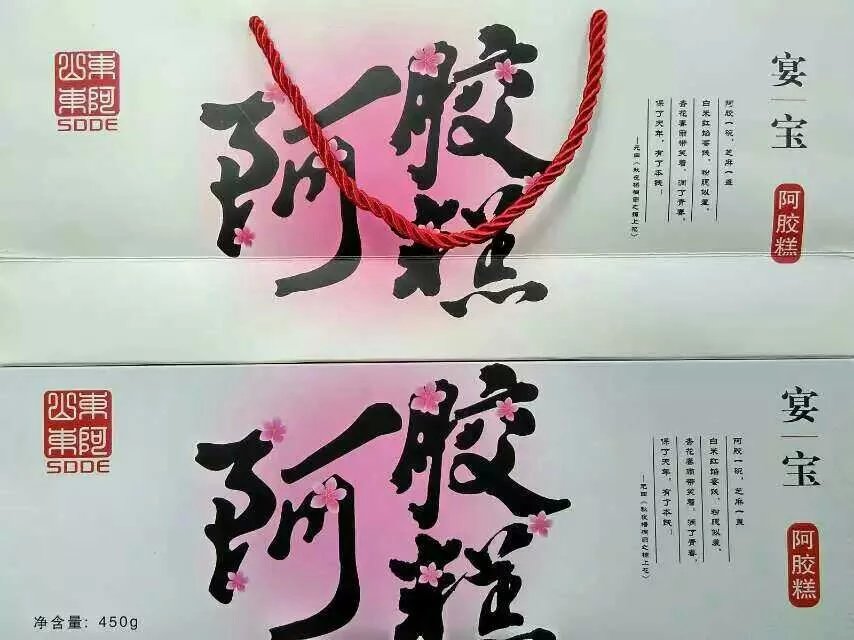 山東
東阿
SDDE
阿胶糕
宴宝
阿胶糕
阿胶一碗，芝麻一盏
白米红馅蜜饯，粉腮似羞，
杏花春雨带笑看，润了青春，
保了天年，有了本钱！
—元曲《秋夜梧桐雨之锦上花》
山東
東阿
SDDE
阿胶糕
宴宝
阿胶糕
阿胶一碗，芝麻一盏
白米红馅蜜饯，粉腮似羞，
杏花春雨带笑看，润了青春，
保了天年，有了本钱！
—元曲《秋夜梧桐雨之锦上花》
净含量: 450g